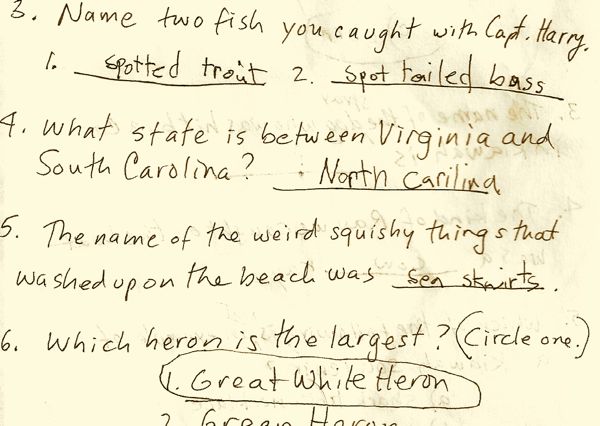 3. Name two fish you caught with Capt. Harry.
1. spotted trout 2. spot tailed bass
4. What state is between Virginia and
South Carolina? North Carilina
5. The name of the weird squishy things that
washed up on the beach was sea skwirts.
6. Which heron is the largest? (Circle one.)
1. Great White Heron
2. Green Heron